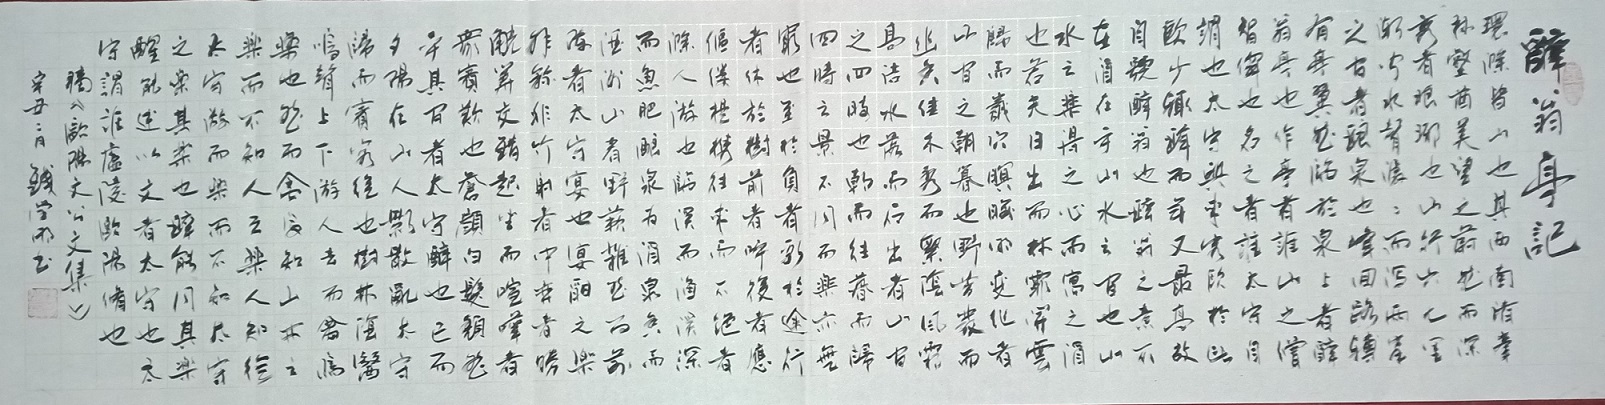 醉翁亭記
環滁皆山也其西南諸峯
林壑尤美望之蔚然而深
秀者琅琊也山行六七里
漸聞水聲潺潺而瀉兩峯
之間者釀泉也峰回路轉
有亭翼然臨於泉上者醉
翁亭也作亭者誰山之僧
智僊也名之者誰太守自
謂也太守與客來飲於此
飲少輒醉而年又最高故
自號醉翁也醉翁之意不
在酒在乎山水之間也山
水之樂得之心而寓之酒
也若夫日出而林霏開雲
歸而巖穴暝晦明變化者
山間之朝暮也野芳發而
幽香佳木秀而繁陰風霜
高潔水落而石出者山間
之四時也朝而往暮而歸
四時之景不同而樂亦無
窮也至於負者歌於途行
者休於樹前者呼後者應
傴僂提攜往來而不絕者
滁人游也臨溪而漁溪深
而魚肥釀泉為酒泉香而
酒洌山肴野蔌雜然而前
陳者太守宴也宴酣之樂
非絲非竹射者中弈者勝
觥籌交錯起坐而喧嘩者
眾賓歡也蒼顏白髮頹然
乎其間者太守醉也已而
夕陽在山人影散亂太守
歸而賓客從也樹林陰翳
鳴聲上下游人去而禽鳥
樂也然而禽鳥知山林之
樂而不知人之樂人知從
太守游而樂而不知太守
之樂其樂也醉能同其樂
醒能述以文者太守也太
守謂誰廬陵歐陽修也
摘《歐陽文公文集》
辛丑二月